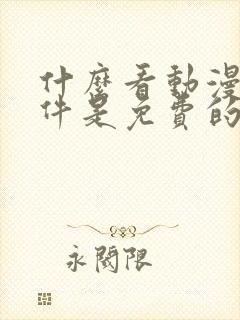 什麼看動漫
件是免費的
永閱限